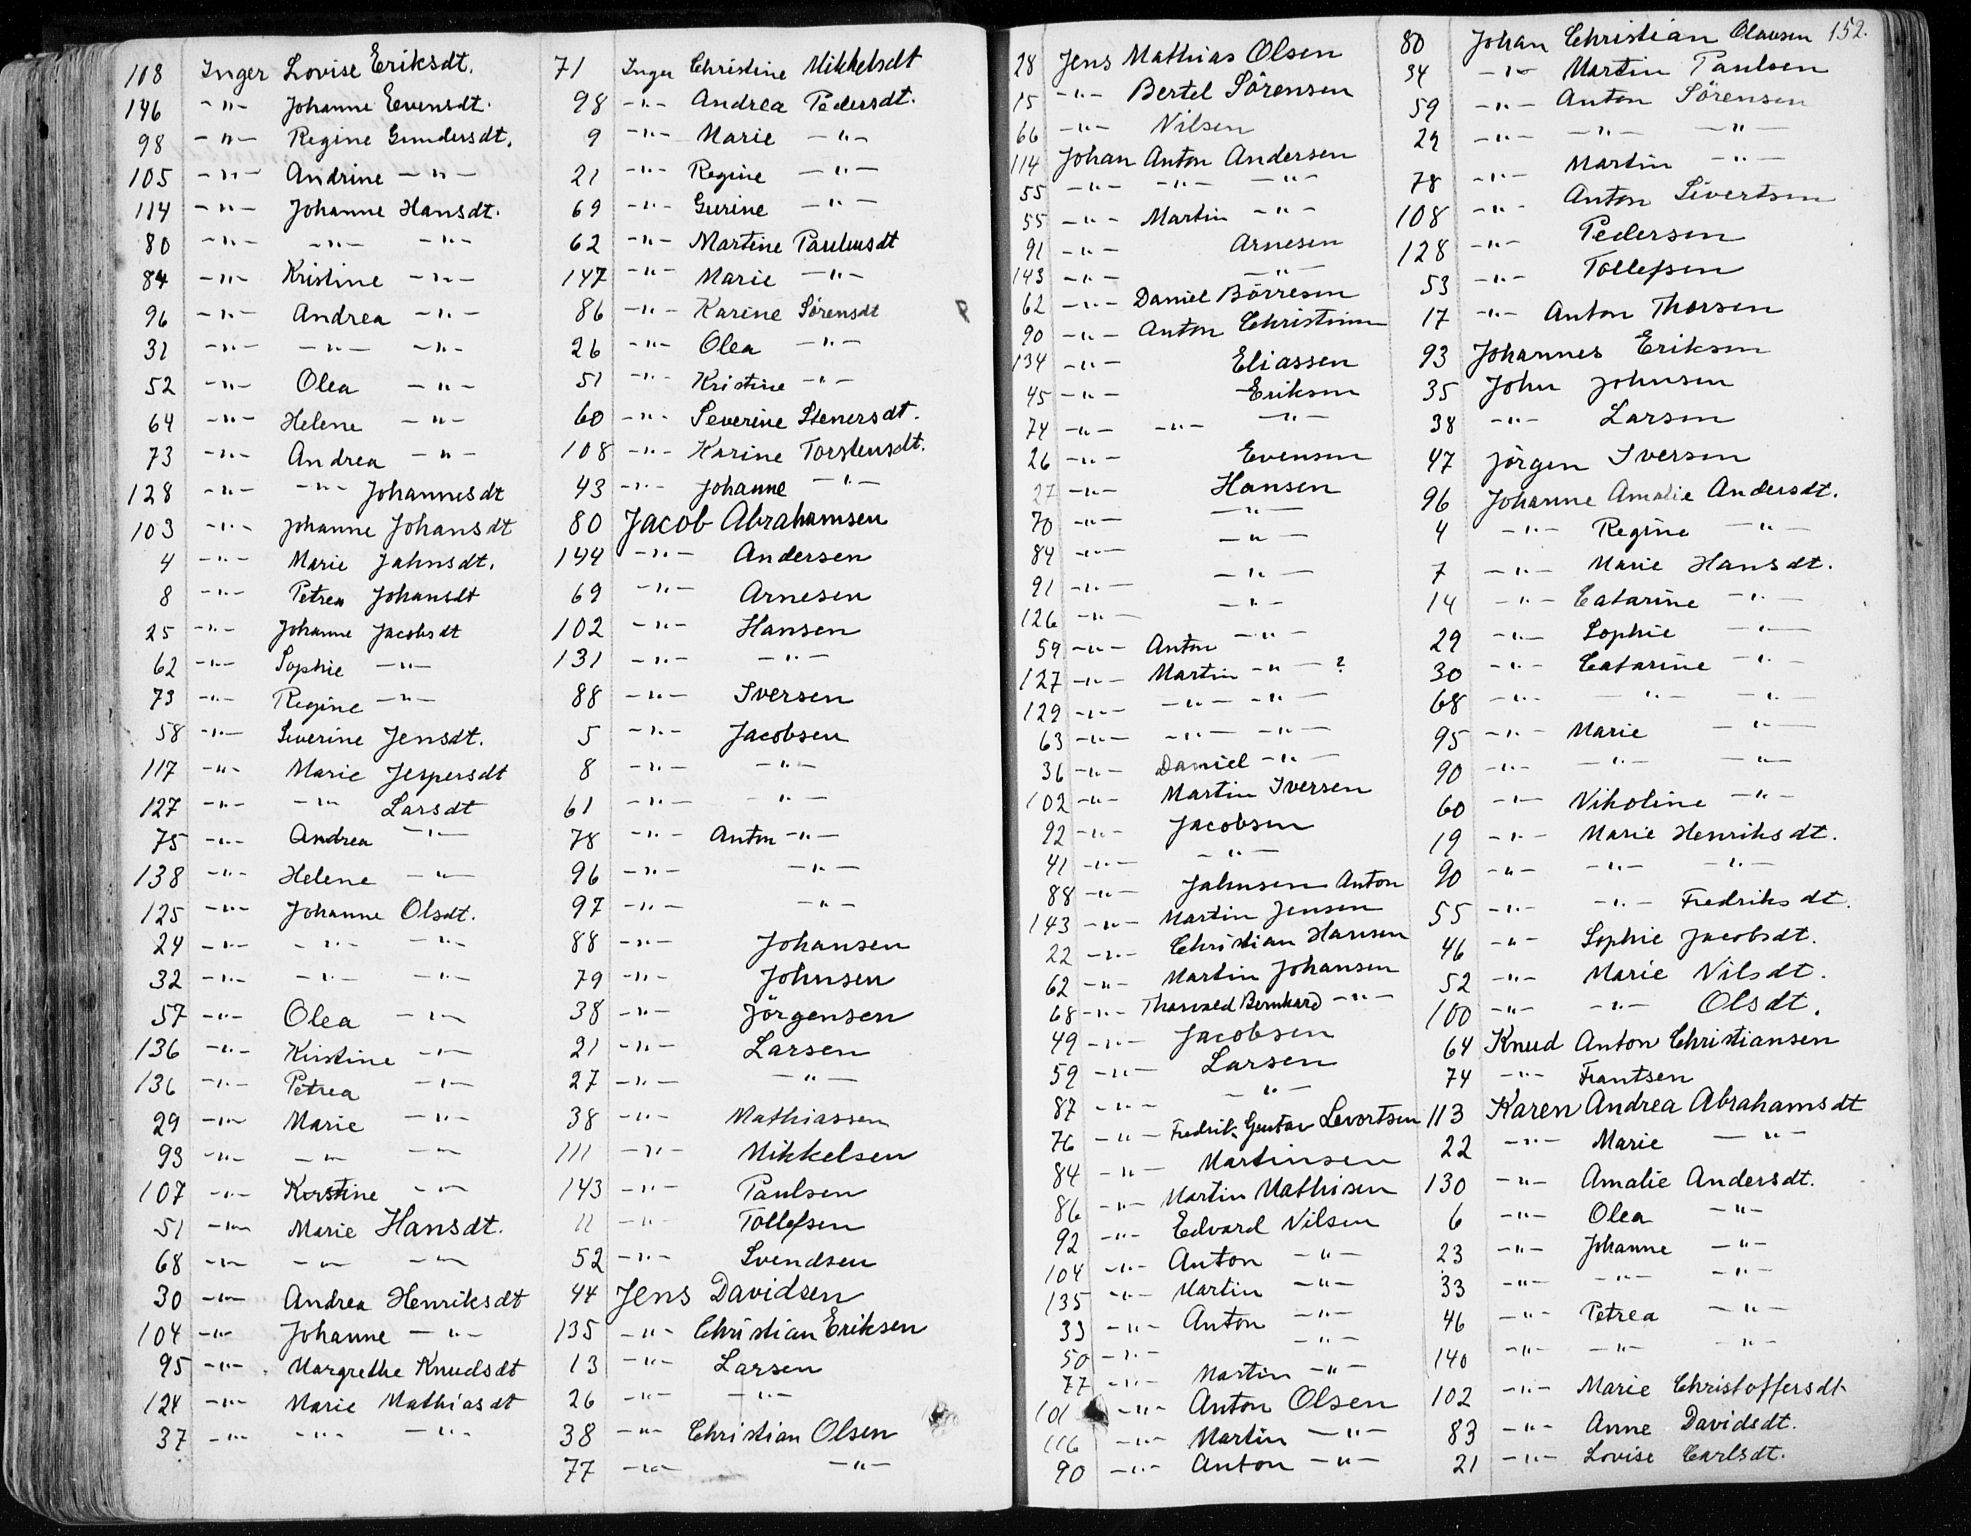 118 Inger Lovise Eriksdt.
146 -"- Johanne Evensdt.
98 -"- Regine Gundersdt.
105 -"- Andrine -"-
114 -"- Johanne Hansdt.
80 -"- -"- -"-
84 -"- Kristine -"-
96 -"- Andrea -"-
31 -"- -"- -"-
52 -"- Olea -"-
64 -"- Helene -"-
73 -"- Andrea -"-
128 -"- -"- Johannesdt
103 -"- Johanne Johansdt
4 -"- Marie Jahnsdt.
8 -"- Petrea Johansdt
25 -"- Johanne Jacobsdt
62 -"- Sophie -"-
73 -"- Regine -"-
58 -"- Severine Jensdt.
117 -"- Marie Jespersdt
127 -"- -"- Larsdt
75 -"- Andrea -"-
138 -"- Helene -"-
125 -"- Johanne Olsdt.
24 -"- -"- -"-
32 -"- -"- -"-
57 -"- Olea -"-
136 -"- Kirstine -"-
136 -"- Petrea -"-
29 -"- Marie -"-
93 -"- -"- -"-
107 -"- Kirstine -"-
51 -"- Marie Hansdt.
68 -"- -"- -"-
30 -"- Andrea Henriksdt
104 -"- Johanne -"-
95 -"- Margrethe Knudsdt
124 -"- Marie Mathiasdt
37 -"- -"- -"-
71 Inger Christine Mikkelsdt
98 -"- Andrea Pedersdt.
9 -"- Marie -"-
21 -"- Regine -"-
69 -"- Gurine -"-
62 -"- Martine Paulusdt
147 -"- Marie -"-
86 -"- Karine Sörensdt
26 -"- Olea -"-
51 -"- Kristine -"-
60 -"- Severine Stenersdt.
108 -"- Karine Torstensdt.
43 -"- Johanne -"-
80 Jacob Abrahamsen
144 -"- Andersen
69 -"- Arnesen
102 -"- Hansen
131 -"- -"-
88 -"- Iversen
5 -"- Jacobsen
8 -"- -"-
61 -"- -"-
78 -"- Anton -"-
96 -"- -"-
97 -"- -"-
88 -"- Johansen
79 -"- Johnsen
38 -"- Jörgensen
21 -"- Larsen
27 -"- -"-
38 -"- Mathiassen
111 -"- Mikkelsen
143 -"- Paulsen
11 -"- Tollefsen
52 -"- Svendsen
44 Jens Davidsen
135 -"- Christian Eriksen
13 -"- Larsen
26 -"- -"-
38 -"- Christian Olsen
77 -"- -"-
28 Jens Mathias Olsen
15 -"- Bertel Sörensen
66 -"- Nilsen
114 Johan Anton Andersen
55 -"- -"- -"-
55 -"- Martin -"-
91 -"- Arnesen
143 -"- -"-
62 -"- Daniel Börresen
90 -"- Anton Christians
134 -"- Eliassen
45 -"- Eriksen
74 -"- -"- -"-
26 -"- Evensen
27 -"- Hansen
70 -"- -"-
84 -"- -"-
91 -"- -"-
126 -"- -"-
59 -"- Anton -"-
127 -"- Martin -"- ?
129 -"- -"- -"-
63 -"- -"- -"-
36 -"- Daniel -"-
102 -"- Martin Iversen
92 -"- Jacobsen
41 -"- -"-
88 -"- Jahnsen Anton
143 -"- Martin Jensen
22 -"- Christian Hansen
62 -"- Martin Johansen
68 -"- Thorvald Bernhard -"-
49 -"- Jacobsen
59 -"- Larsen
87 -"- -"-
76 -"- Fredrik Gustav Levortsen
84 -"- Martinsen
86 -"- Martin Mathisen
92 -"- Edvard Nilsen
104 -"- Anton -"-
135 -"- Martin -"-
33 -"- Anton -"-
50 -"- -"-
77 -"- Martin -"-
101 -"- Anton Olsen
116 -"- Martin -"-
90 -"- Anton -"-
152.
80 Johan Christian Olausen
34 -"- Martin Paulsen
59 -"- Anton Sörensen
29 -"- -"- -"-
78 -"- Martin -"-
108 -"- Anton Sivertsen
128 -"- Pedersen
53 -"- Tollefsen
17 -"- Anton Thorsen
93 Johannes Eriksen
35 John Johnsen
38 -"- Larsen
47 Jörgen Iversen
96 Johanne Amalie Andersdt.
4 -"- Regine -"-
7 -"- Marie Hansdt.
14 -"- Catarine -"-
29 -"- Sophie -"-
30 -"- Catarine -"-
68 -"- -"- -"-
95 -"- Marie -"-
90 -"- -"- -"-
60 -"- Nikoline -"-
19 -"- Marie Henriksdt.
90 -"- -"- -"-
55 -"- -"- Fredriksdt.
46 -"- Sophie Jacobsdt.
52 -"- Marie Nilsdt.
100 -"- -"- Olsdt.
64 Knud Anton Christiansen
74 -"- Frantsen
113 Karen Andrea Abrahamsdt
22 -"- Marie -"-
130 -"- Amalie Andersdt.
6 -"- Olea -"-
23 -"- Johanne -"-
33 -"- -"- -"-
46 -"- Petrea -"-
140 -"- -"- -"-
102 -"- Marie Christoffersdt
83 -"- Anne Davidsdt.
21 -"- Lovise Carlsdt.